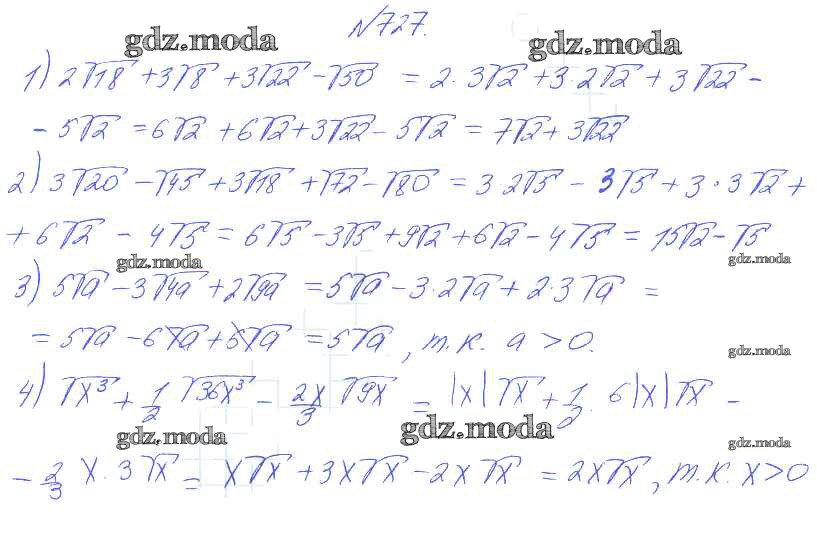 №727.
gdz.moda gdz.moda
1) 2√18 + 3√8 + 3√22 - √50 = 2·3√2 + 3·2√2 + 3√22 -
- 5√2 = 6√2 + 6√2 + 3√22 - 5√2 = 7√2 + 3√22
2) 3√20 - √45 + 3√18 + √72 - √80 = 3·2√5 - 3√5 + 3·3√2 +
+ 6√2 - 4√5 = 6√5 - 3√5 + 9√2 + 6√2 - 4√5 = 15√2 - √5
gdz.moda gdz.moda
3) 5√a - 3√4a + 2√9a = 5√a - 3·2√a + 2·3√a =
= 5√a - 6√a + 6√a = 5√a, т.к. a > 0.
gdz.moda
4) √x³ + 1/2 √36x³ - 2x/3 √9x = |x|√x + 1/2 · 6|x|√x -
gdz.moda gdz.moda gdz.moda
- 2/3 x · 3√x = x√x + 3x√x - 2x√x = 2x√x, т.к. x > 0